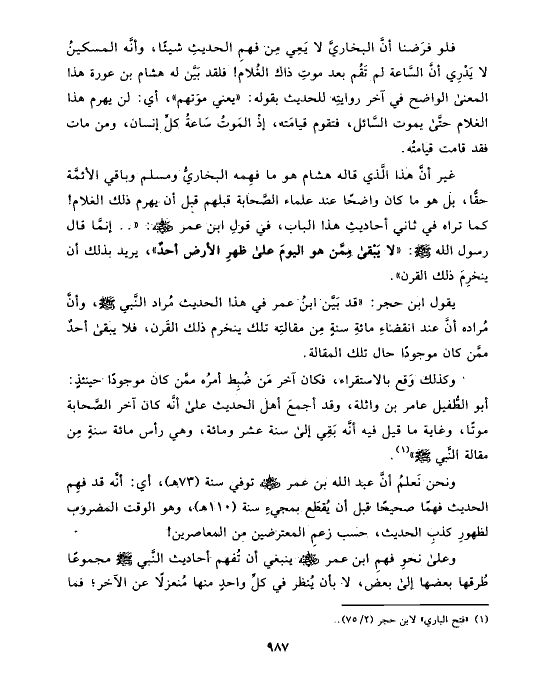 فلو فرَضنا أنَّ البخاريَّ لا يَعِي مِن فهمِ الحديثِ شيئًا، وأنَّه المسكينُ
لا يَدْرِي أنَّ السَّاعة لم تَقُم بعد موتِ ذاك الغُلام! فلقد بَيَّن له هشام بن عورة هذا
المعنىٰ الواضح في آخر روايتِه للحديث بقوله: «يعني موَتهم»، أي: لن يهرم هذا
الغلام حتَّىٰ يموت السَّائل، فتقوم قيامَته، إذْ المَوتُ سَاعةُ كلِّ إنسان، ومن مات
فقد قامت قيامتُه.
غير أنَّ هٰذا الَّذي قاله هشام هو ما فهِمه البخاريُّ ومسلم وباقي الأئمَّة
حقًّا، بل هو ما كان واضحًا عند علماء الصَّحابة قبلهم قبل أن يهرم ذلك الغلام!
كما تراه في ثاني أحاديثِ هذا الباب، في قولِ ابن عمر ﷺ: «.. إنمَّا قال
رسول الله ﷺ: «لا يَبْقىٰ مِمَّن هو اليومَ علىٰ ظهرِ الأرض أحدٌ»، يريد بذلك أن
ينخرِمَ ذلك القرن».
يقول ابن حجر: «قد بَيَّن ابنُ عمر في هذا الحديث مُراد النَّبي ﷺ، وأنَّ
مُراده أنَّ عند انقضاءِ مائةِ سنةٍ مِن مقالتِه تلك ينخرم ذلك القَرن، فلا يبقىٰ أحدٌ
ممَّن كان موجودًا حال تلك المقالة.
وكذلك وَقع بالاستقراء، فكان آخر مَن ضُبِط أمرُه ممَّن كان موجودًا حينئذٍ:
أبو الطُّفيل عامر بن واثلة، وقد أجمعَ أهل الحديث علىٰ أنَّه كان آخر الصَّحابة
موتًا، وغاية ما قيل فيه أنَّه بَقِي إلىٰ سنة عشر ومائة، وهي رأس مائة سنةٍ مِن
مقالة النَّبي ﷺ»(١).
ونحن نَعلمُ أنَّ عبد الله بن عمر توفي سنة (٧٣هـ)، أي: أنَّه قد فهِم
الحديث فهمًا صحيحًا قبل أن يُقطَع بمجيءِ سنة (١١٠هـ)، وهو الوقت المضروب
لظهورِ كذبِ الحديث، حسب زعمِ المعترضين من المعاصرين!
وعلىٰ نحوِ فهمِ ابن عمر ينبغي أن تُفهم أحاديث النَّبي ﷺ مجموعًا
طُرقها بعضها إلىٰ بعض، لا بأن يُنظر في كلِّ واحدٍ منها مُنعزلًا عن الآخر؛ فما
(١) «فتح الباري» لابن حجر (٢/ ٧٥)..
٩٨٧